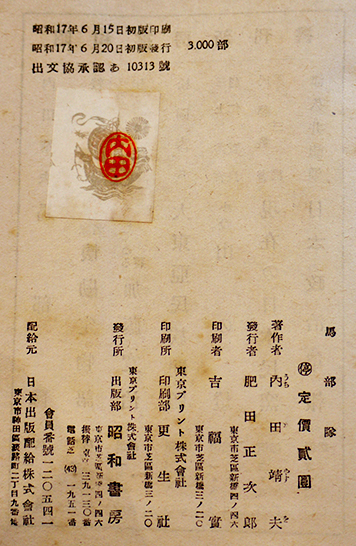 昭和17年6月15日初版印刷
昭和17年6月20日初版發行
3.000部
出文協承認あ 10313號
内田
馬部隊
停 定價貳圓
著作者 内田靖夫
發行者 肥田正次郎
東京市芝區新橋四ノ四六
印刷者 吉福實
東京市芝區新橋三ノ二〇
東京プリント株式會社
印刷所 印刷部 更生社
東京市芝區新橋三ノ二〇
東京プリント株式會社
發行所 出版部 昭和書房
東京市芝區新橋四ノ四六
電話芝(43)一九五一
會員番號一二〇五四一
配給元 日本出版配給株式會社
東京市神田區淡路町二丁目九番地